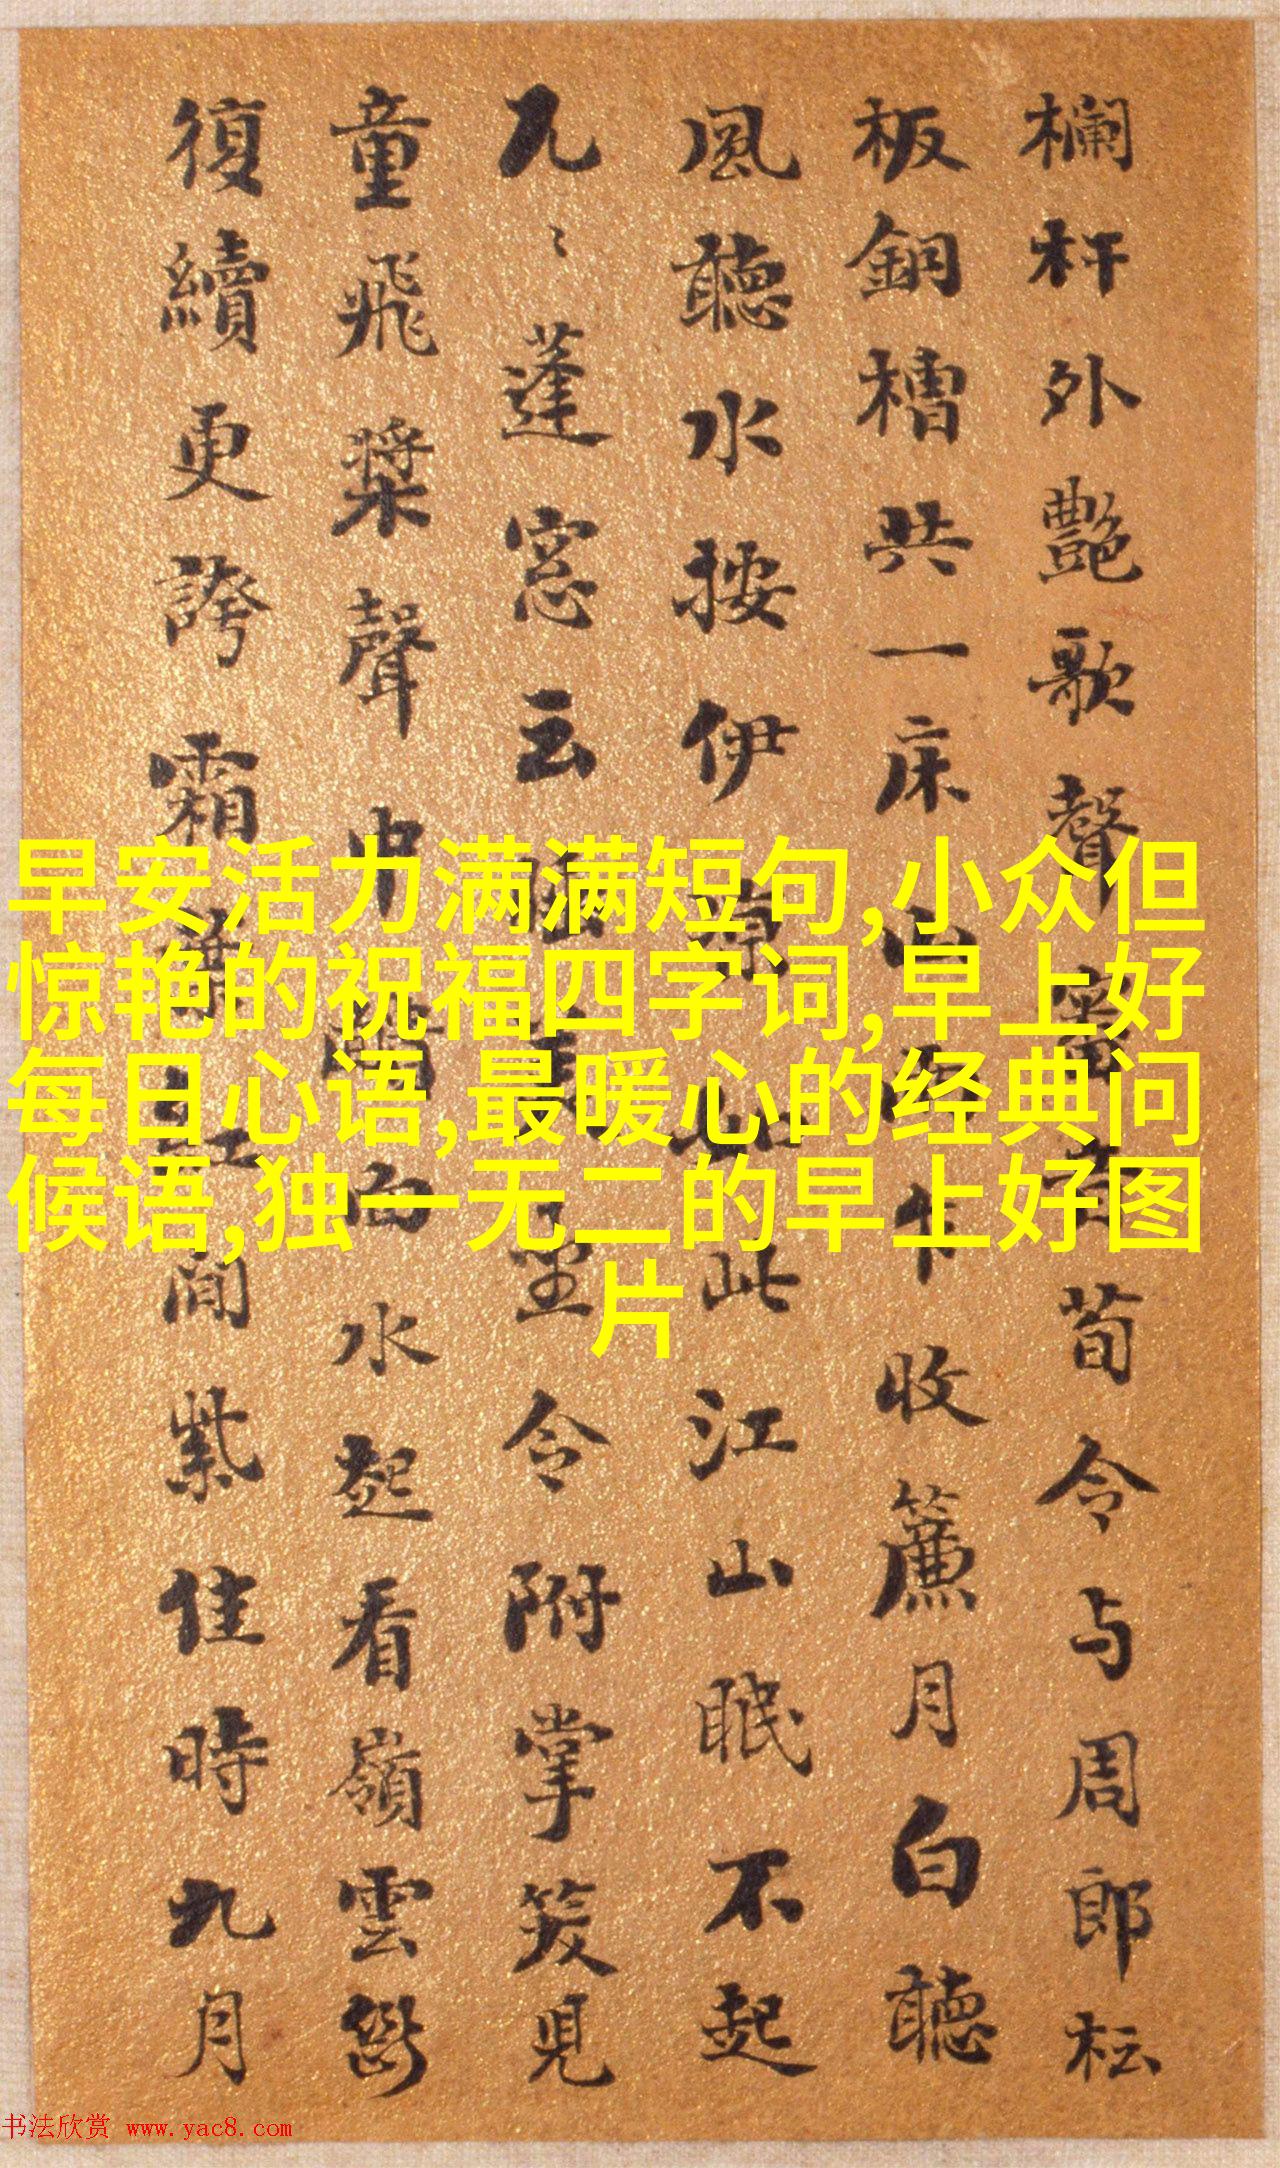 欄杆外艷歌聲荀令与周郎枟
板銅槽共一床山雨乍收簾月白聽
風聽水按伊凉如此江山眠不起
凡〻蓬窓云睡至令附掌笑見
童飛槳聲中醒面水起看嶺雲
復續更誇霜葉紅間紫佳時九月
早安活力满满短句,小众但
惊艳的祝福四字词,早上好
每日心语,最暖心的经典问
候语,独一无二的早上好图
片
书法欣赏 www.yac8.com